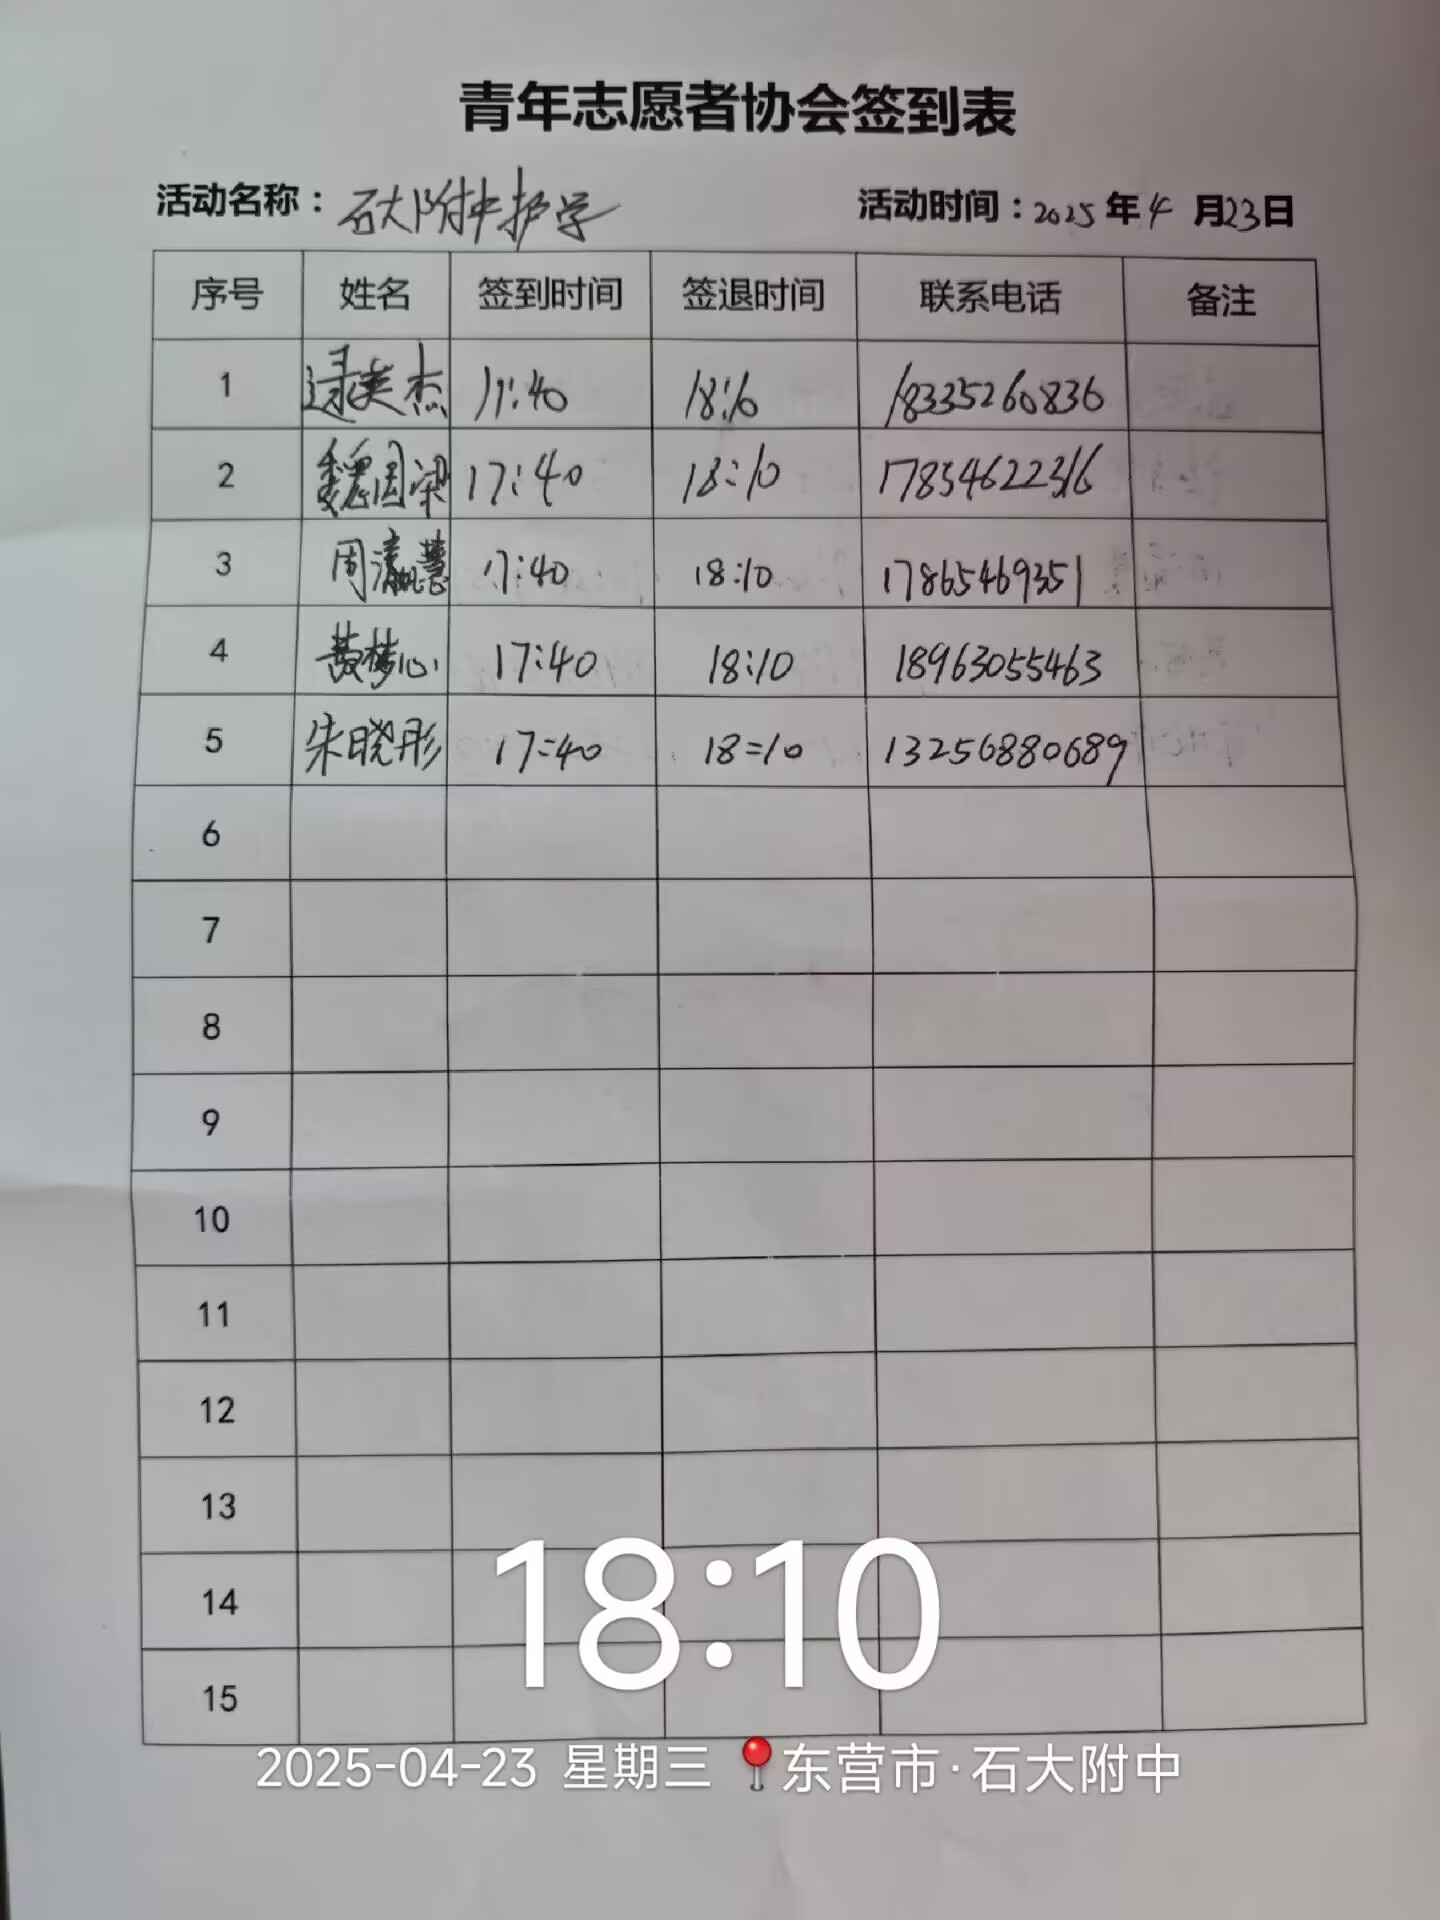 青年志愿者协会签到表
活动名称：石大附中护学 活动时间：2025年4月23日
序号 姓名 签到时间 签退时间 联系电话 备注
1 逯英杰 17:40 18:10 18335260836
2 魏国梁 17:40 18:10 17854622316
3 周瀛慧 17:40 18:10 17865469351
4 黄梦心 17:40 18:10 18963055463
5 朱晓彤 17:40 18:10 13256880689
6
7
8
9
10
11
12
13
14
15
18:10
2025-04-23 星期三 东营市·石大附中